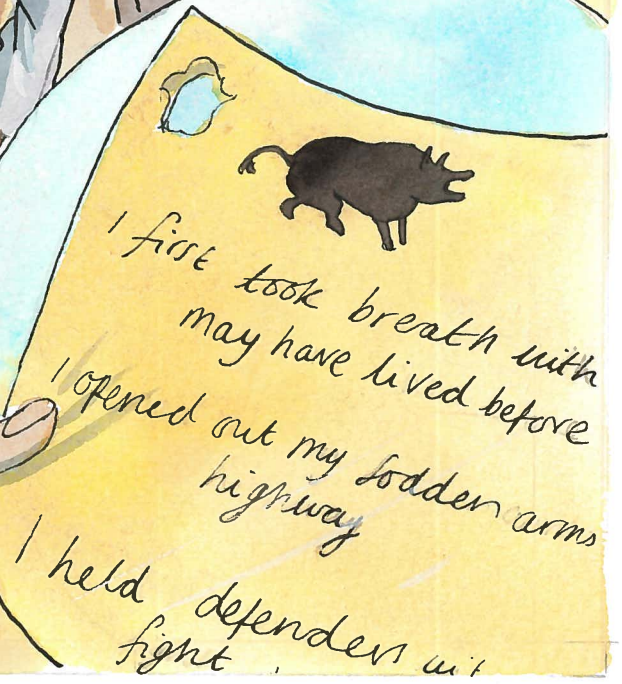 I first took breath with
may have lived before
I opened out my sodden arms
highway
I held defenders
fight